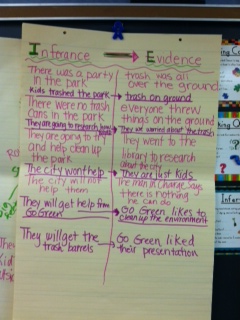 Inference → Evidence
There was a party
in the park
Kids trashed the park
There were no trash
cans in the park
They are going to research how
They are going to try
and help clean up
the park
The city wont help
The city will not
help them
They will get help from
Go Green
They will get the
trash barrels
trash was all
over the ground
trash on ground
everyone threw
things on the ground
They worried about the trash
They went to the
library to research
about the city
They are just kids
The man in charge says
there is nothing
he can do
Go Green likes to
clean up the environment
Go Green liked
their presentation